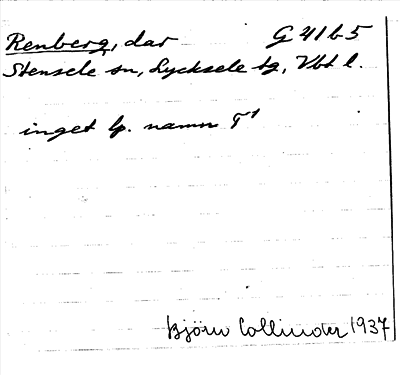 Renberg, dar G 41 b 5
Stensele sn, Lycksele tg, Vbt l.
inget lp. namn T¹
Björn Collinder 1937